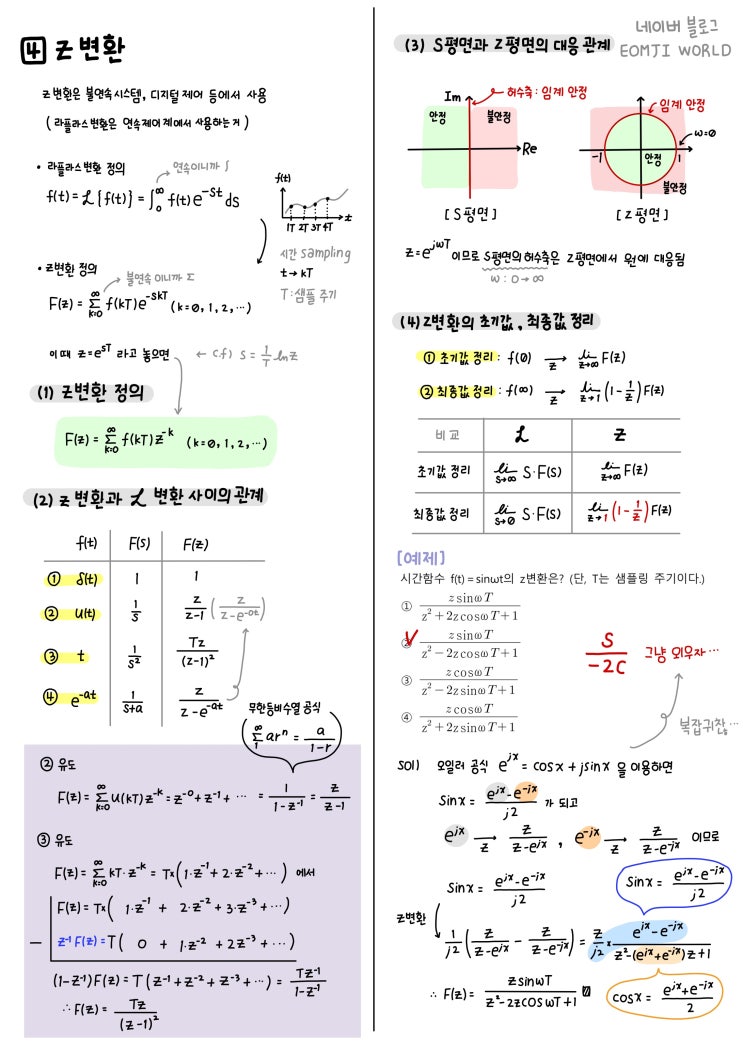 4 Z 변환
Z변환은 불연속시스템, 디지털 제어 등에서 사용
(라플라스변환은 연속제어계에서 사용하는거)
• 라플라스변환 정의
연속이니까 ∫
f(t) = ℒ{f(t)} = ∫₀^∞ f(t)e^-St ds
f(t)
1T 2T 3T 4T
t
시간 sampling
t → kT
T : 샘플 주기
• Z변환 정의
불연속 이니까 Σ
F(z) = Σ_{k=0}^∞ f(kT)e^-SkT (k=0, 1, 2, …)
이때 z = e^ST 라고 놓으면 ← c.f) S = 1/T ln z
(1) Z변환 정의
F(z) = Σ_{k=0}^∞ f(kT)z^-k (k=0, 1, 2, …)
(2) Z 변환과 ℒ 변환 사이의 관계
f(t) F(s) F(z)
① δ(t) 1 1
② u(t) 1/s z/(z-1) (z/(z-e^-0t))
③ t 1/s² Tz/(z-1)²
④ e^-at 1/(s+a) z/(z-e^-at)
무한등비수열 공식
Σ_1^∞ ar^n = a/(1-r)
② 유도
F(z) = Σ_{k=0}^∞ u(kT)z^-k = z^-0 + z^-1 + … = 1/(1-z^-1) = z/(z-1)
③ 유도
F(z) = Σ_{k=0}^∞ kT·z^-k = T×(1·z^-1 + 2·z^-2 + …) 에서
F(z) = T×(1·z^-1 + 2·z^-2 + 3·z^-3 + …)
— z^-1 F(z) = T(0 + 1·z^-2 + 2z^-3 + …)
(1-z^-1)F(z) = T(z^-1 + z^-2 + z^-3 + …) = Tz^-1/(1-z^-1)
∴ F(z) = Tz/(z-1)²
네이버 블로그
EOMJI WORLD
(3) S평면과 Z평면의 대응 관계
Im
허수축 : 임계 안정
안정
불안정
Re
[S평면]
임계 안정
ω=0
-1
안정
1
불안정
[Z평면]
z = e^jωT 이므로 S평면의 허수축은 Z평면에서 원에 대응됨
ω : 0 → ∞
(4) Z변환의 초기값, 최종값 정리
① 초기값 정리 : f(0) →z lim_{z→∞} F(z)
② 최종값 정리 : f(∞) →z lim_{z→1} (1 - 1/z) F(z)
비교 ℒ Z
초기값 정리 lim_{s→∞} S·F(s) lim_{z→∞} F(z)
최종값 정리 lim_{s→0} S·F(s) lim_{z→1} (1 - 1/z) F(z)
[예제]
시간함수 f(t) = sinωt의 z변환은? (단, T는 샘플링 주기이다.)
① z sinωT / (z² + 2z cosωT + 1)
② z sinωT / (z² - 2z cosωT + 1)
③ z cosωT / (z² - 2z sinωT + 1)
④ z cosωT / (z² + 2z sinωT + 1)
S/-2C 그냥 외우자…
복잡귀찮…
sol) 오일러 공식 e^jx = cosx + jsinx 을 이용하면
Sinx = (e^jx - e^-jx)/j2 가 되고
e^jx →z z/(z-e^jx) , e^-jx →z z/(z-e^-jx) 이므로
Sinx = (e^jx - e^-jx)/j2
Sinx = (e^jx - e^-jx)/j2
Z변환
1/j2 (z/(z-e^jx) - z/(z-e^-jx)) = z/j2 × (e^jx - e^-jx)/(z² - (e^jx + e^-jx)z + 1)
∴ F(z) = z sinωT / (z² - 2z cos ωT + 1)
cosx = (e^jx + e^-jx)/2